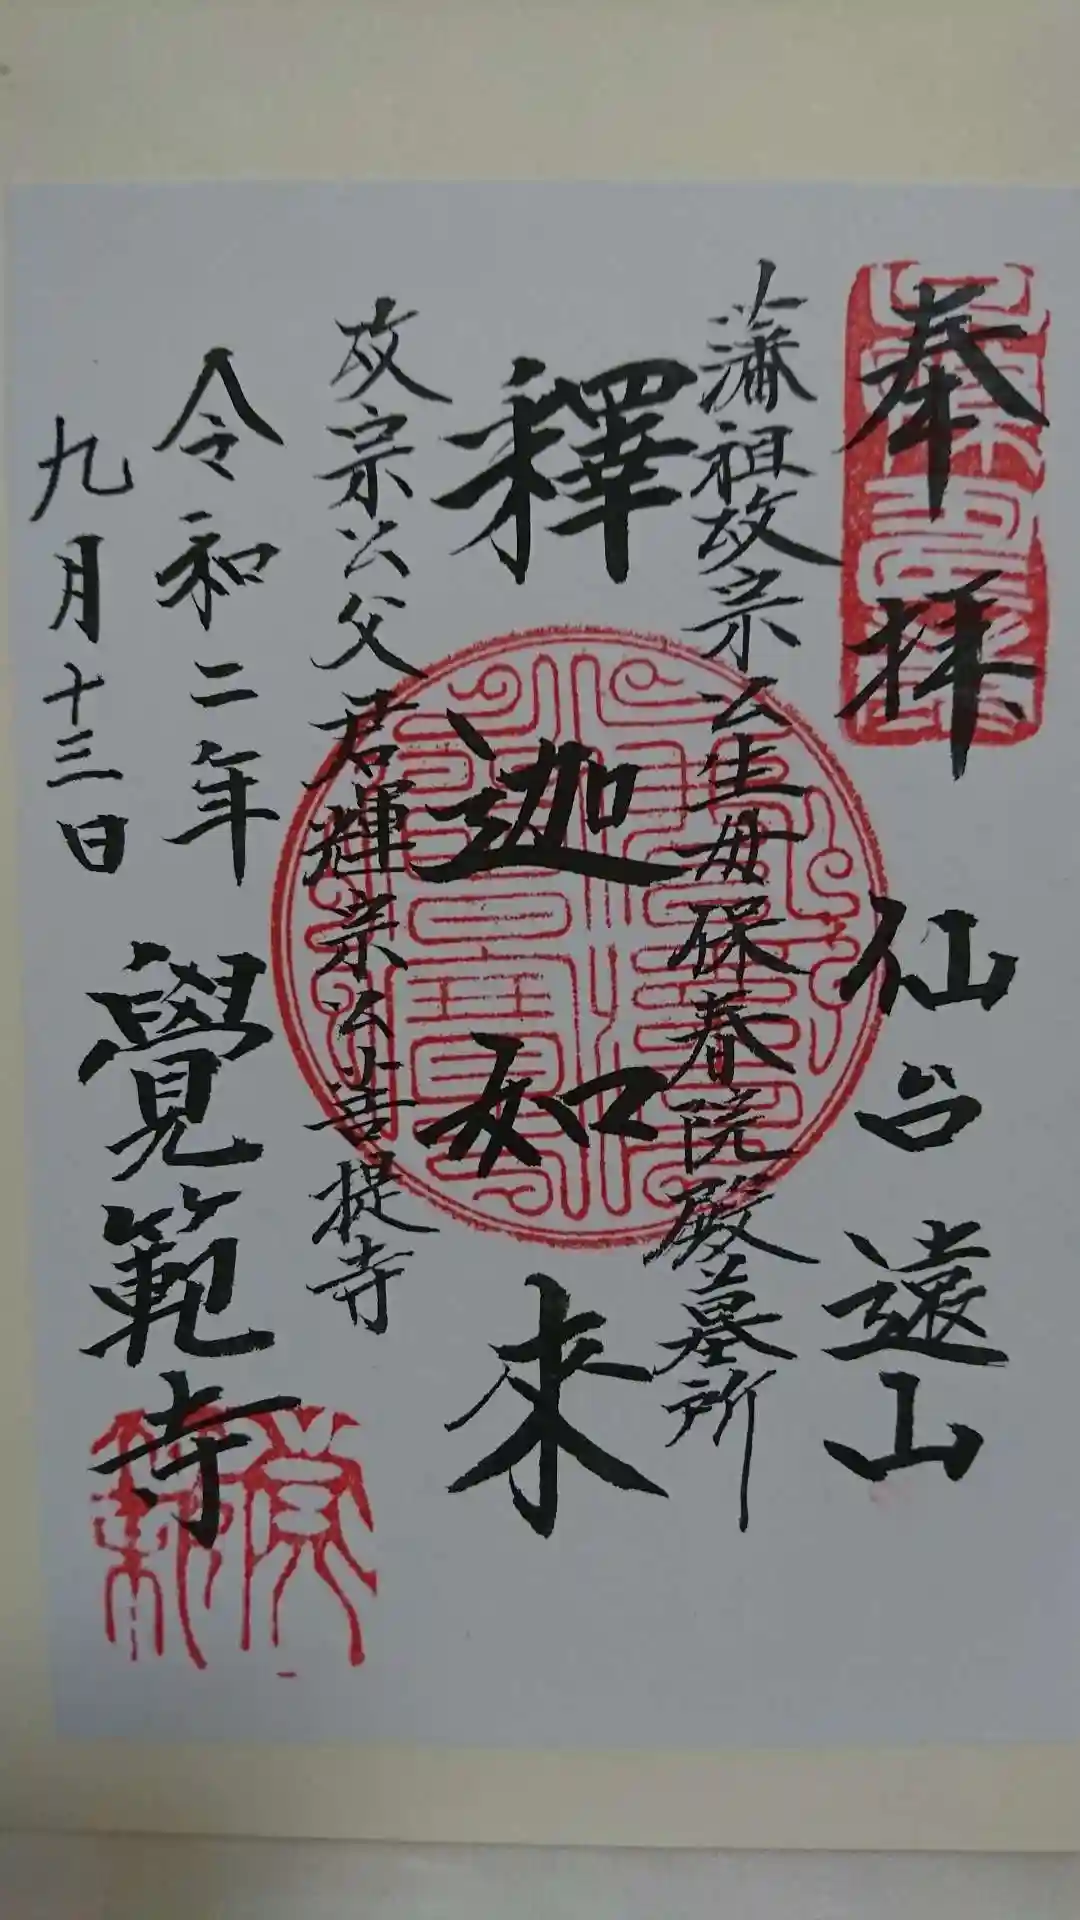 奉拜 仙台 遠山
藩祖政宗公生母保春院殿墓所
釋迦如来
政宗公父君輝宗公菩提寺
令和二年
九月十三日
覺範寺